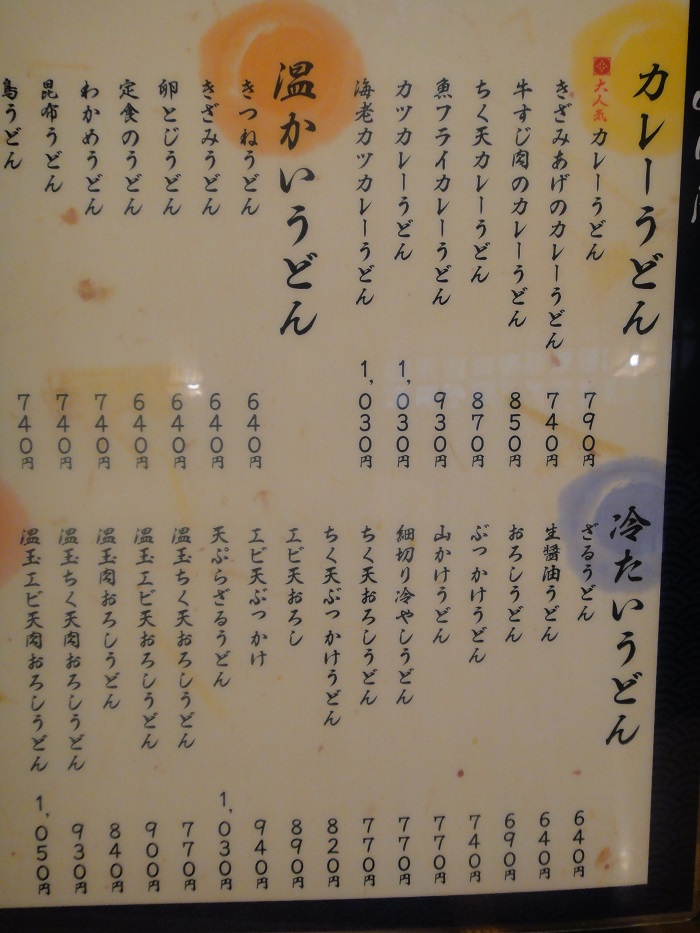 カレーうどん
大人気 カレーうどん 790円
きざみあげのカレーうどん 740円
牛すじ肉のカレーうどん 850円
ちく天カレーうどん 870円
魚フライカレーうどん 930円
カツカレーうどん 1,030円
海老カツカレーうどん 1,030円
温かいうどん
きつねうどん 640円
きざみうどん 640円
卵とじうどん 640円
定食のうどん 640円
わかめうどん 740円
昆布うどん 740円
鳥うどん 740円
冷たいうどん
ざるうどん 640円
生醤油うどん 640円
おろしうどん 690円
ぶっかけうどん 740円
山かけうどん 770円
細切り冷やしうどん 770円
ちく天おろしうどん 770円
ちく天ぶっかけうどん 820円
エビ天おろし 890円
エビ天ぶっかけ 940円
天ぷらざるうどん 1,030円
温玉ちく天おろしうどん 770円
温玉エビ天おろしうどん 900円
温玉肉おろしうどん 840円
温玉ちく天肉おろしうどん 930円
温玉エビ天肉おろしうどん 1,050円